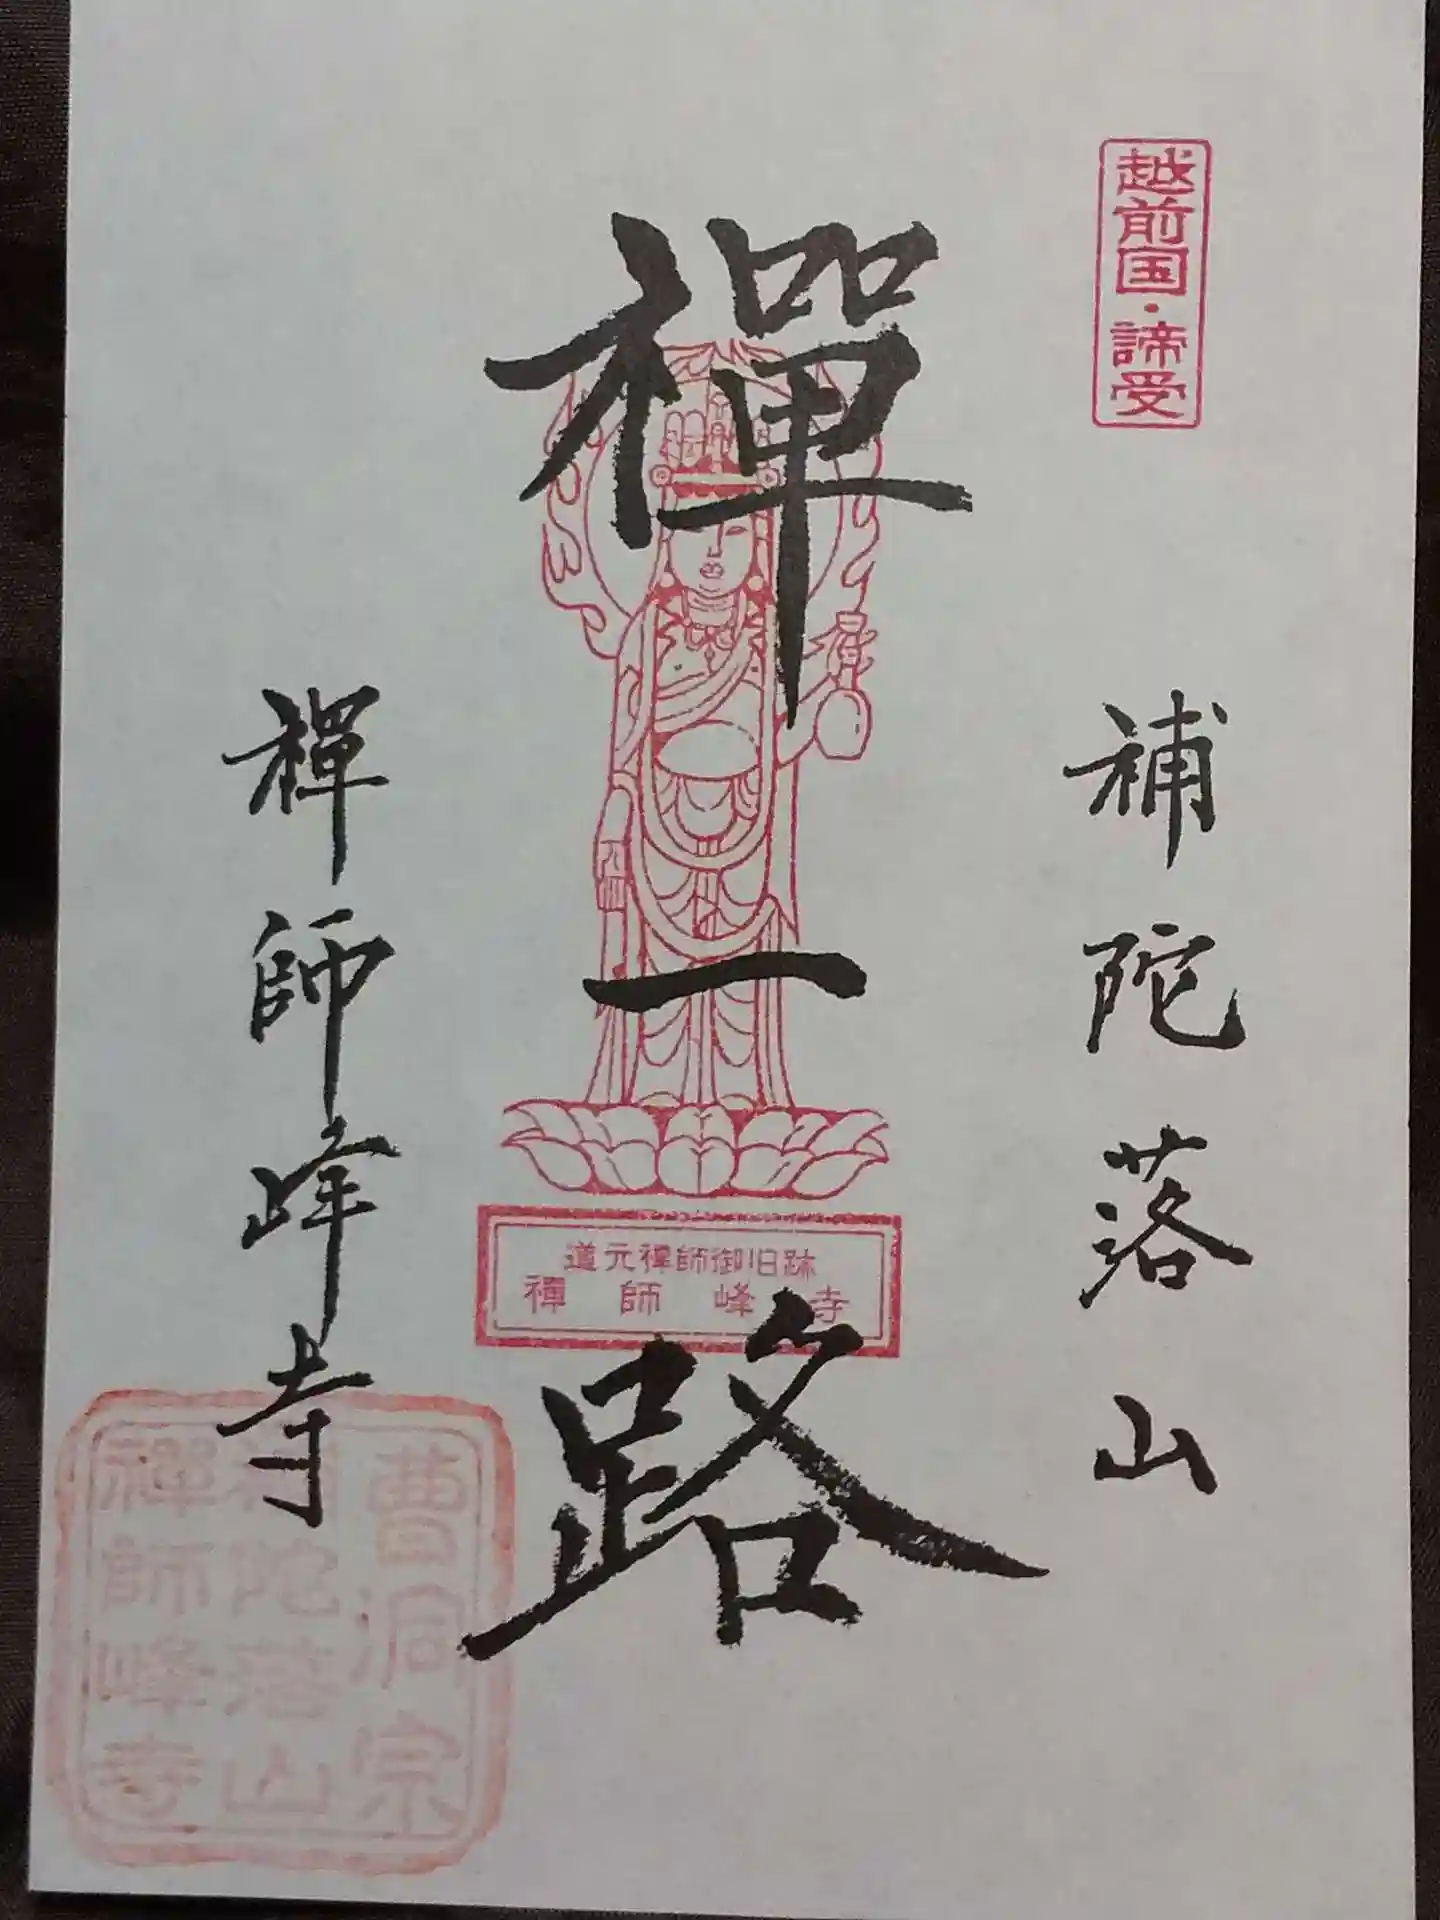 越前国・諦受
補陀落山
禅一路
道元禅師御旧跡
禅師峰寺
禅師峰寺
曹洞宗
補陀落山
禅師峰寺